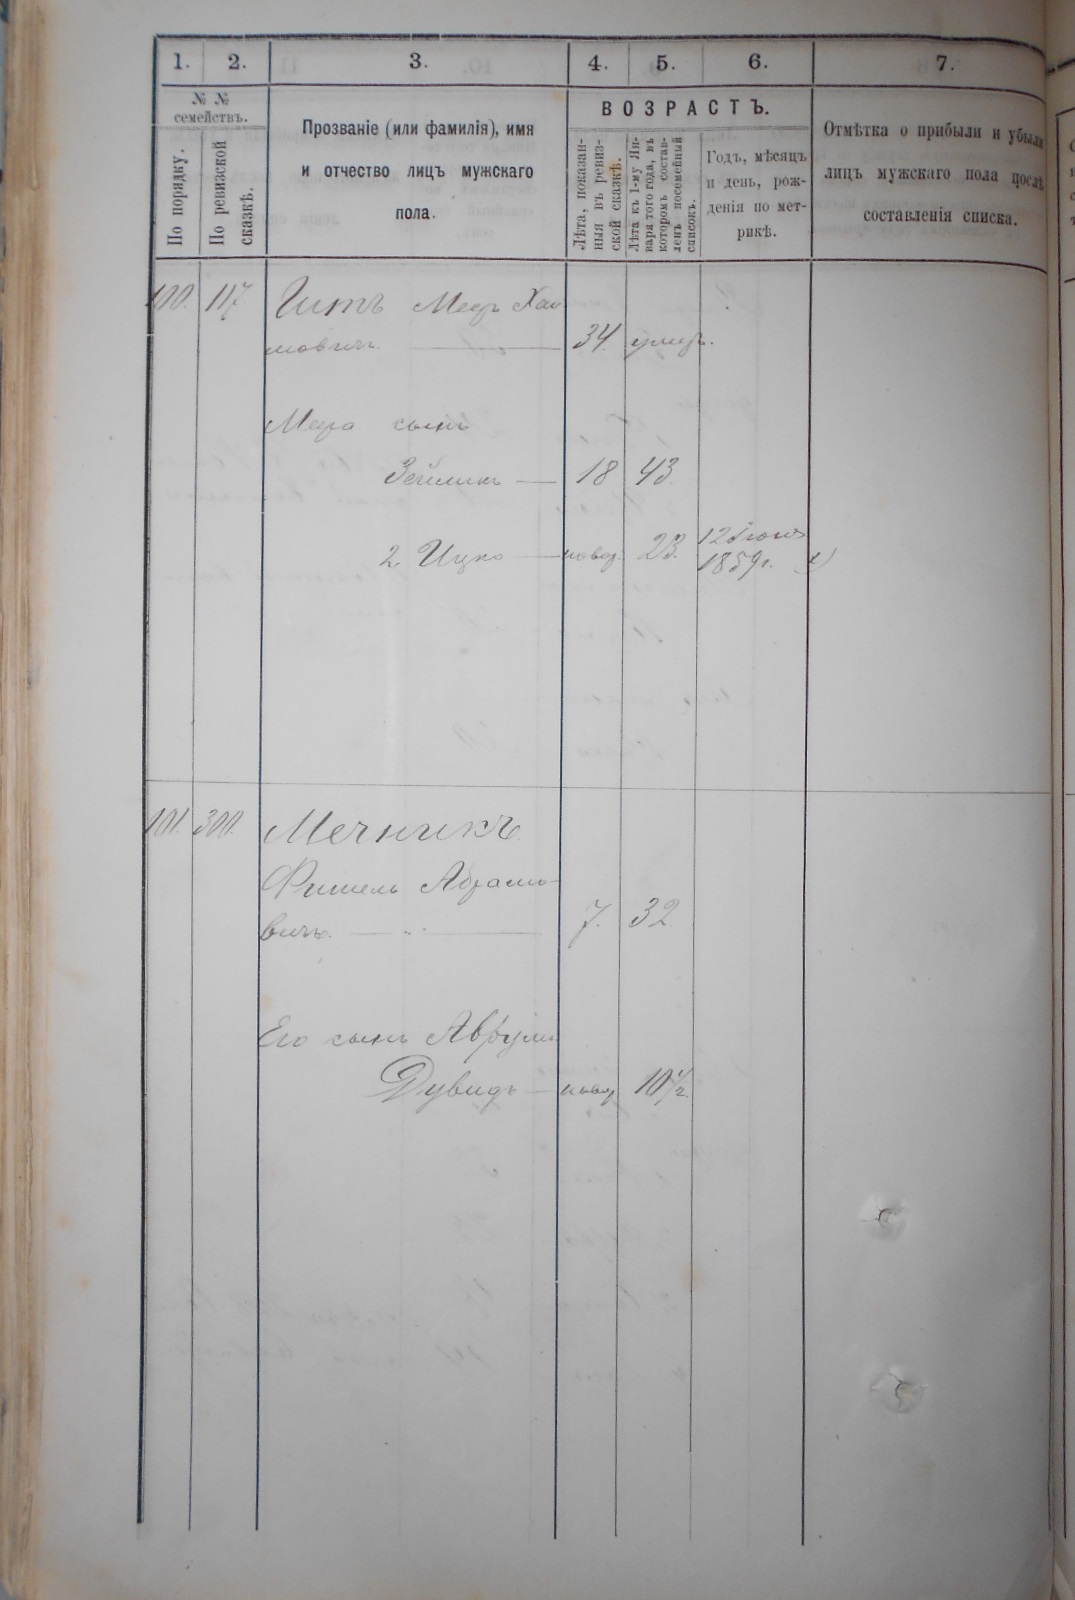 1. 2. 3. 4. 5. 6. 7.
№ № семействъ.
По порядку.
По ревизской сказкѣ.
Прозваніе (или фамилія), имя
и отчество лицъ мужскаго
пола.
ВОЗРАСТЪ.
Лѣта, показан-
ныя въ ревиз-
ской сказкѣ.
Лѣта къ 1-му Ян-
варя того года, въ
которомъ состав-
ленъ посемейный
списокъ.
Годъ, мѣсяцъ
и день, рож-
денія по мет-
рикѣ.
Отмѣтка о прибыли и убыли
лицъ мужскаго пола послѣ
составленія списка.
100. 117 Гитъ Меер Хаи
мовичъ. 34 умер.
Меера сынъ
Зейликъ 18 43
2 Ицко новор. 23. 12 Iюня
1859 г.
101. 300. Мечникъ
Фишель Абрамо-
вичъ. 7. 32
Его сынъ Аврумъ
Дувидъ новор 10 1/2